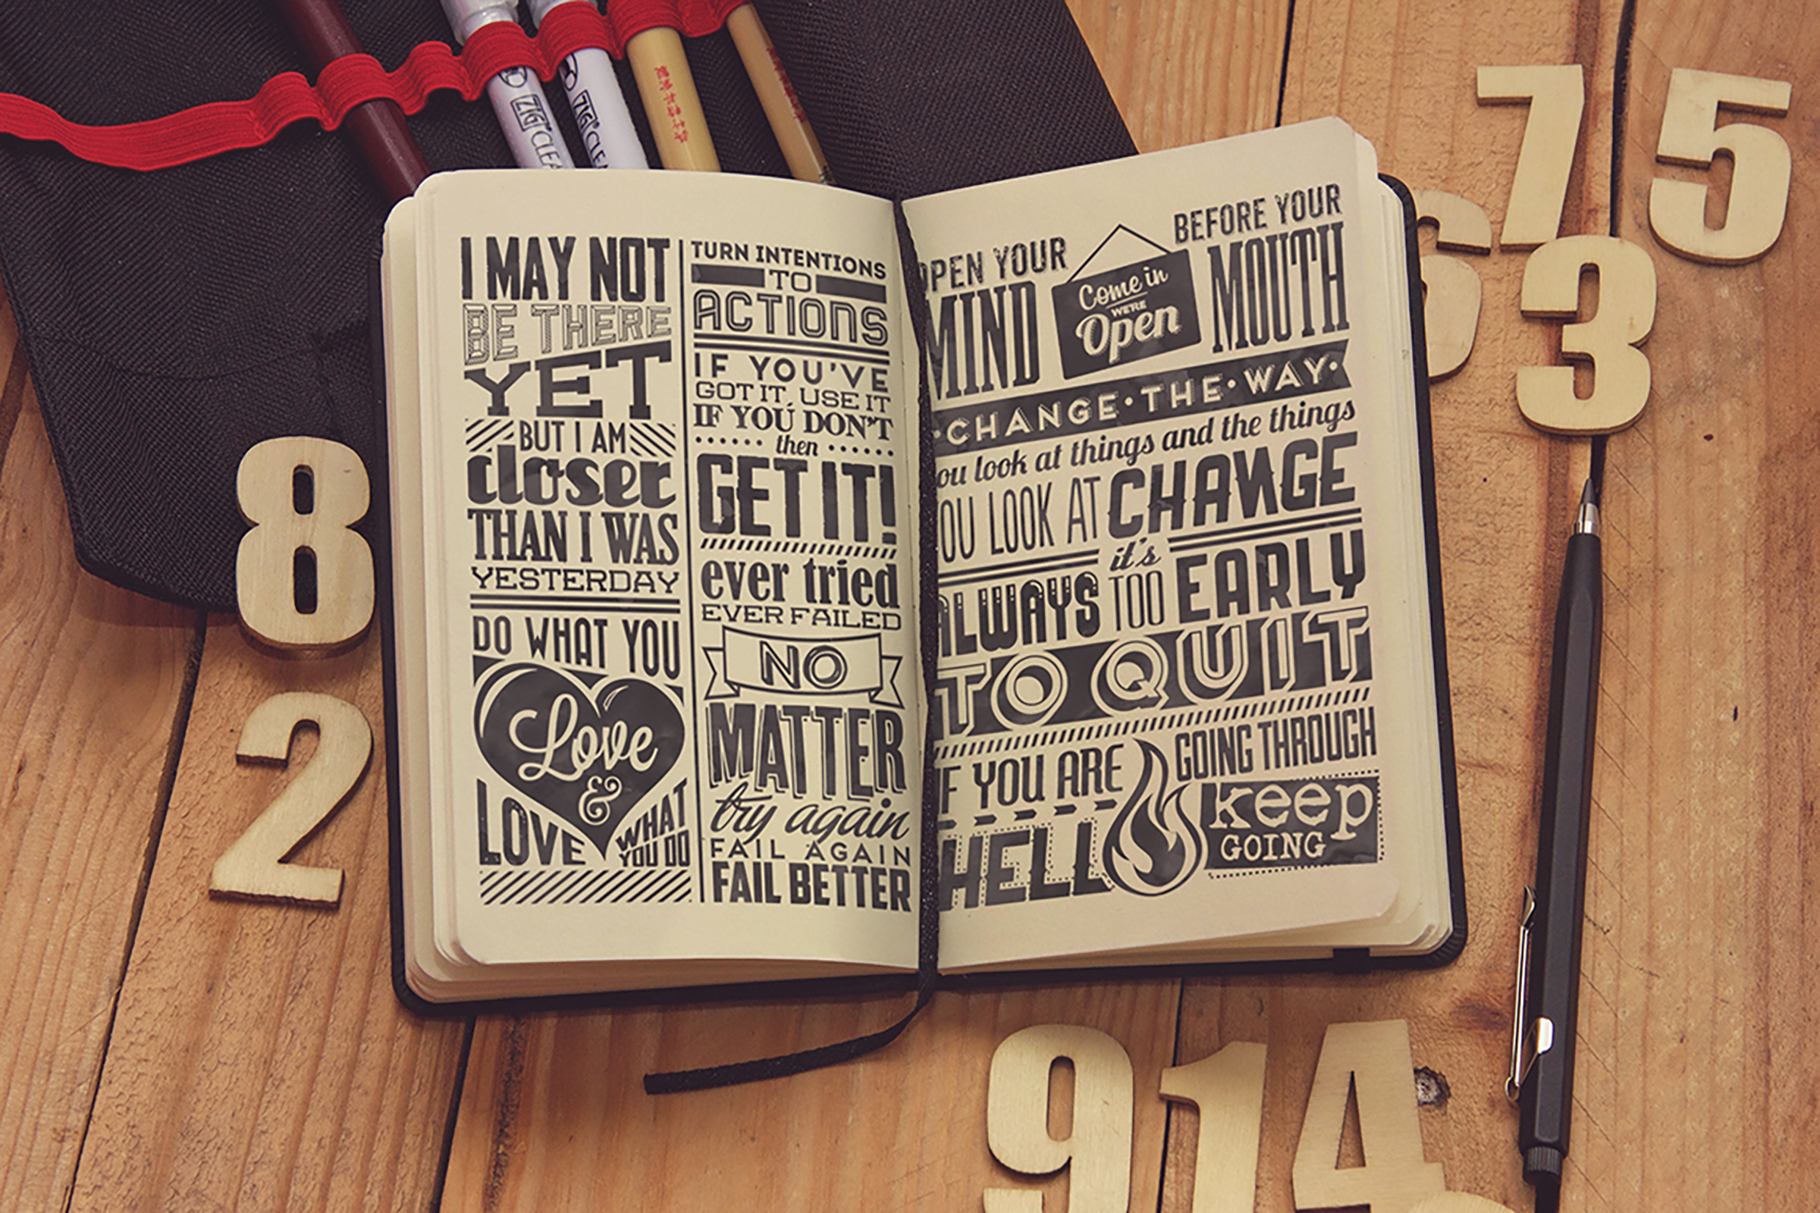 ZIG CLEA
ZIG CLEA
7 5
6 3
8
2
9 1 4
I MAY NOT
BE THERE
YET
BUT I AM
closer
THAN I WAS
YESTERDAY
DO WHAT YOU
Love
&
LOVE WHAT
YOU DO
TURN INTENTIONS
TO
ACTIONS
IF YOU'VE
GOT IT, USE IT
IF YOU DON'T
then
GET IT!
ever tried
EVER FAILED
NO
MATTER
try again
FAIL AGAIN
FAIL BETTER
OPEN YOUR
MIND
Come in
WE'RE
Open
BEFORE YOUR
MOUTH
CHANGE•THE•WAY•
ou look at things and the things
OU LOOK AT CHANGE
it's
ALWAYS TOO EARLY
TO QUIT
IF YOU ARE GOING THROUGH
HELL keep
GOING